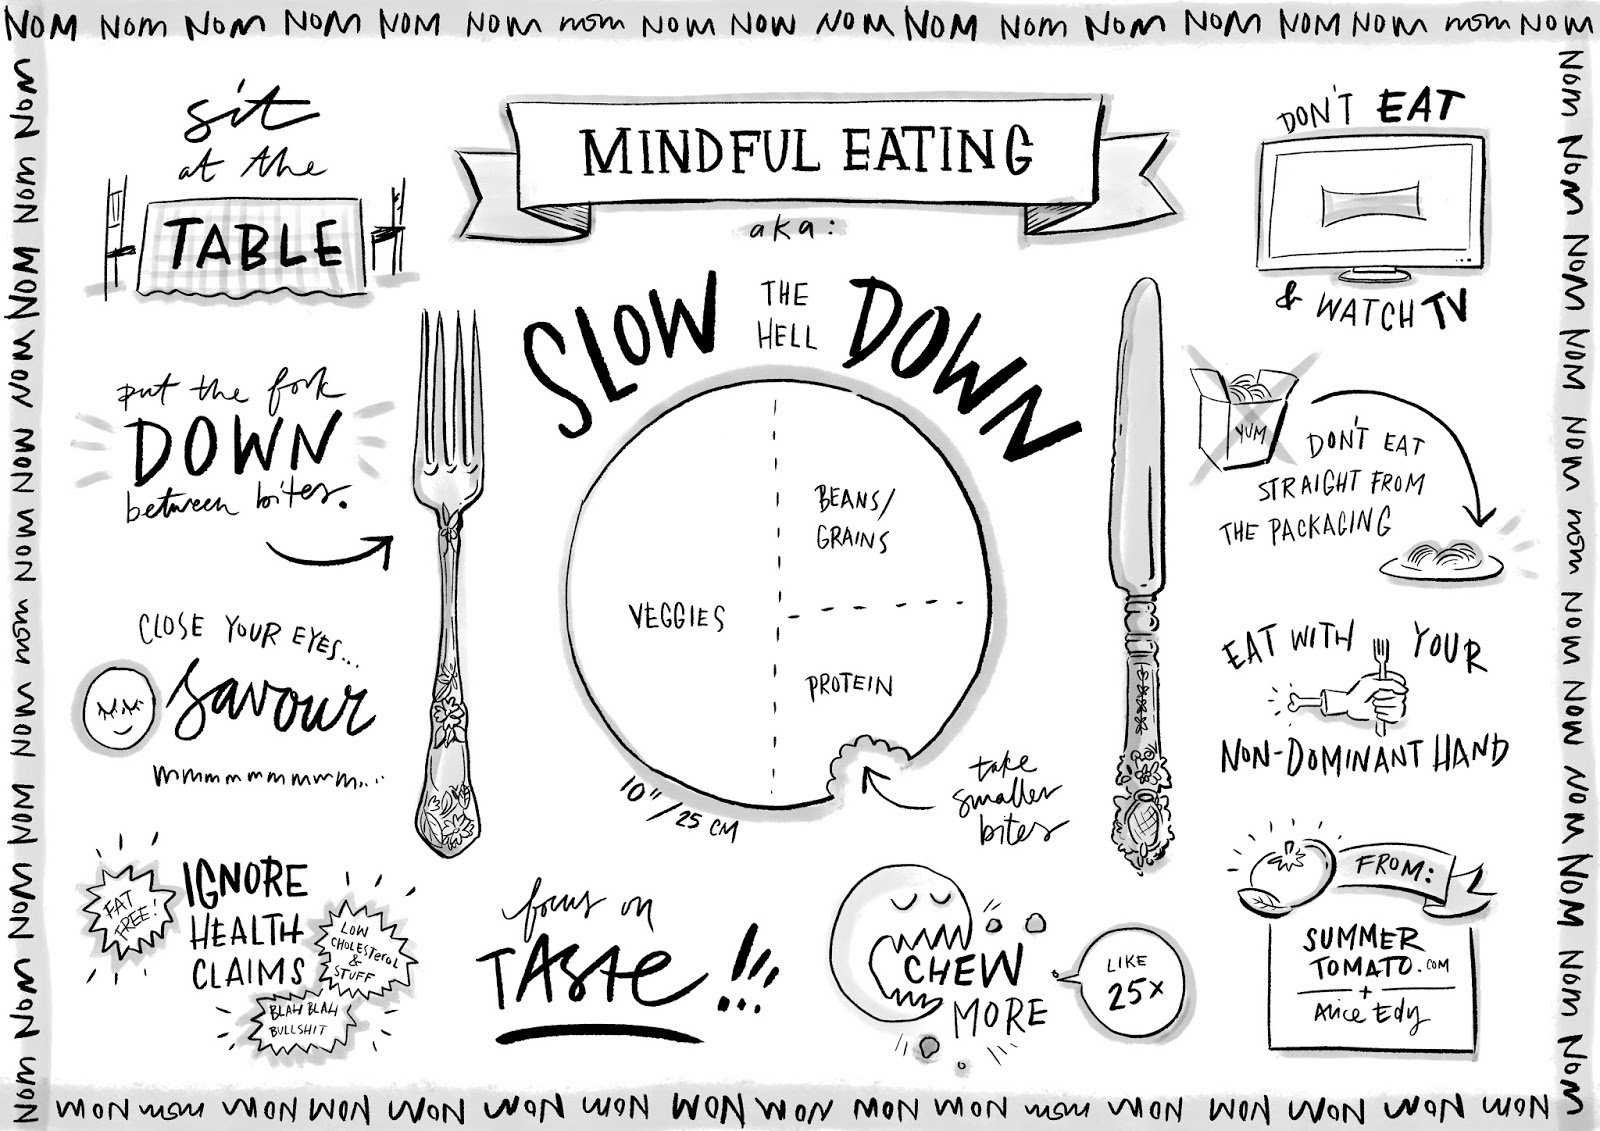 NOM Nom Nom Nom NOM Nom nom Nom NOW NOM NOM Nom Nom Nom NOM NOM nom NOM
MINDFUL EATING
aka:
SLOW THE HELL DOWN
sit
at the
TABLE
DON'T EAT
& WATCH TV
put the fork
DOWN
between bites.
YUM
DON'T EAT
STRAIGHT FROM
THE PACKAGING
VEGGIES
BEANS/
GRAINS
PROTEIN
10"/25 CM
take
smaller
bites
CLOSE YOUR EYES...
savour
mmmmmmmmm...
EAT WITH YOUR
NON-DOMINANT HAND
IGNORE
HEALTH
CLAIMS
FAT
FREE!
LOW
CHOLESTEROL
&
STUFF
BLAH BLAH
BULLSHIT
focus on
TASTE!!!
CHEW
MORE
LIKE
25x
FROM:
SUMMER
TOMATO.COM
+
Alice Edy
Nom Nom Nom Nom Nom nom Nom NOW NOM NOM Nom Nom
Nom Nom Nom Nom Nom nom Nom Nom Nom NOM Nom Nom
Nom Nom Nom Nom Nom nom Nom Nom Nom NOM Nom Nom Nom NOM Nom nom Nom